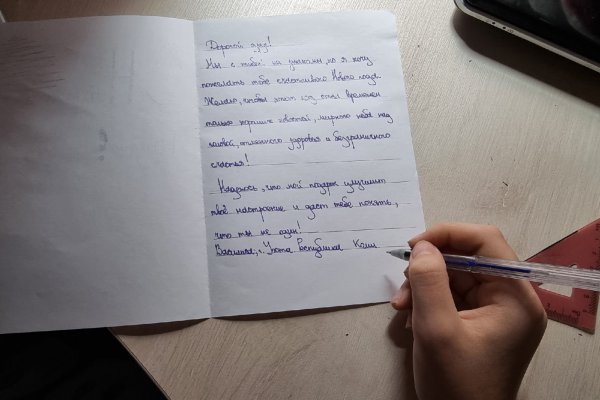 Дорогой друг!
Мы с тобой не знакомы, но я хочу
пожелать тебе счастливого Нового года.
Желаю, чтобы этот год стал временем
только хороших новостей, мирного неба над
головой, отменного здоровья и безграничного
счастья!
Надеюсь, что мой подарок улучшит
твоё настроение и даст тебе понять,
что ты не один!
г. Ухта Республика Коми